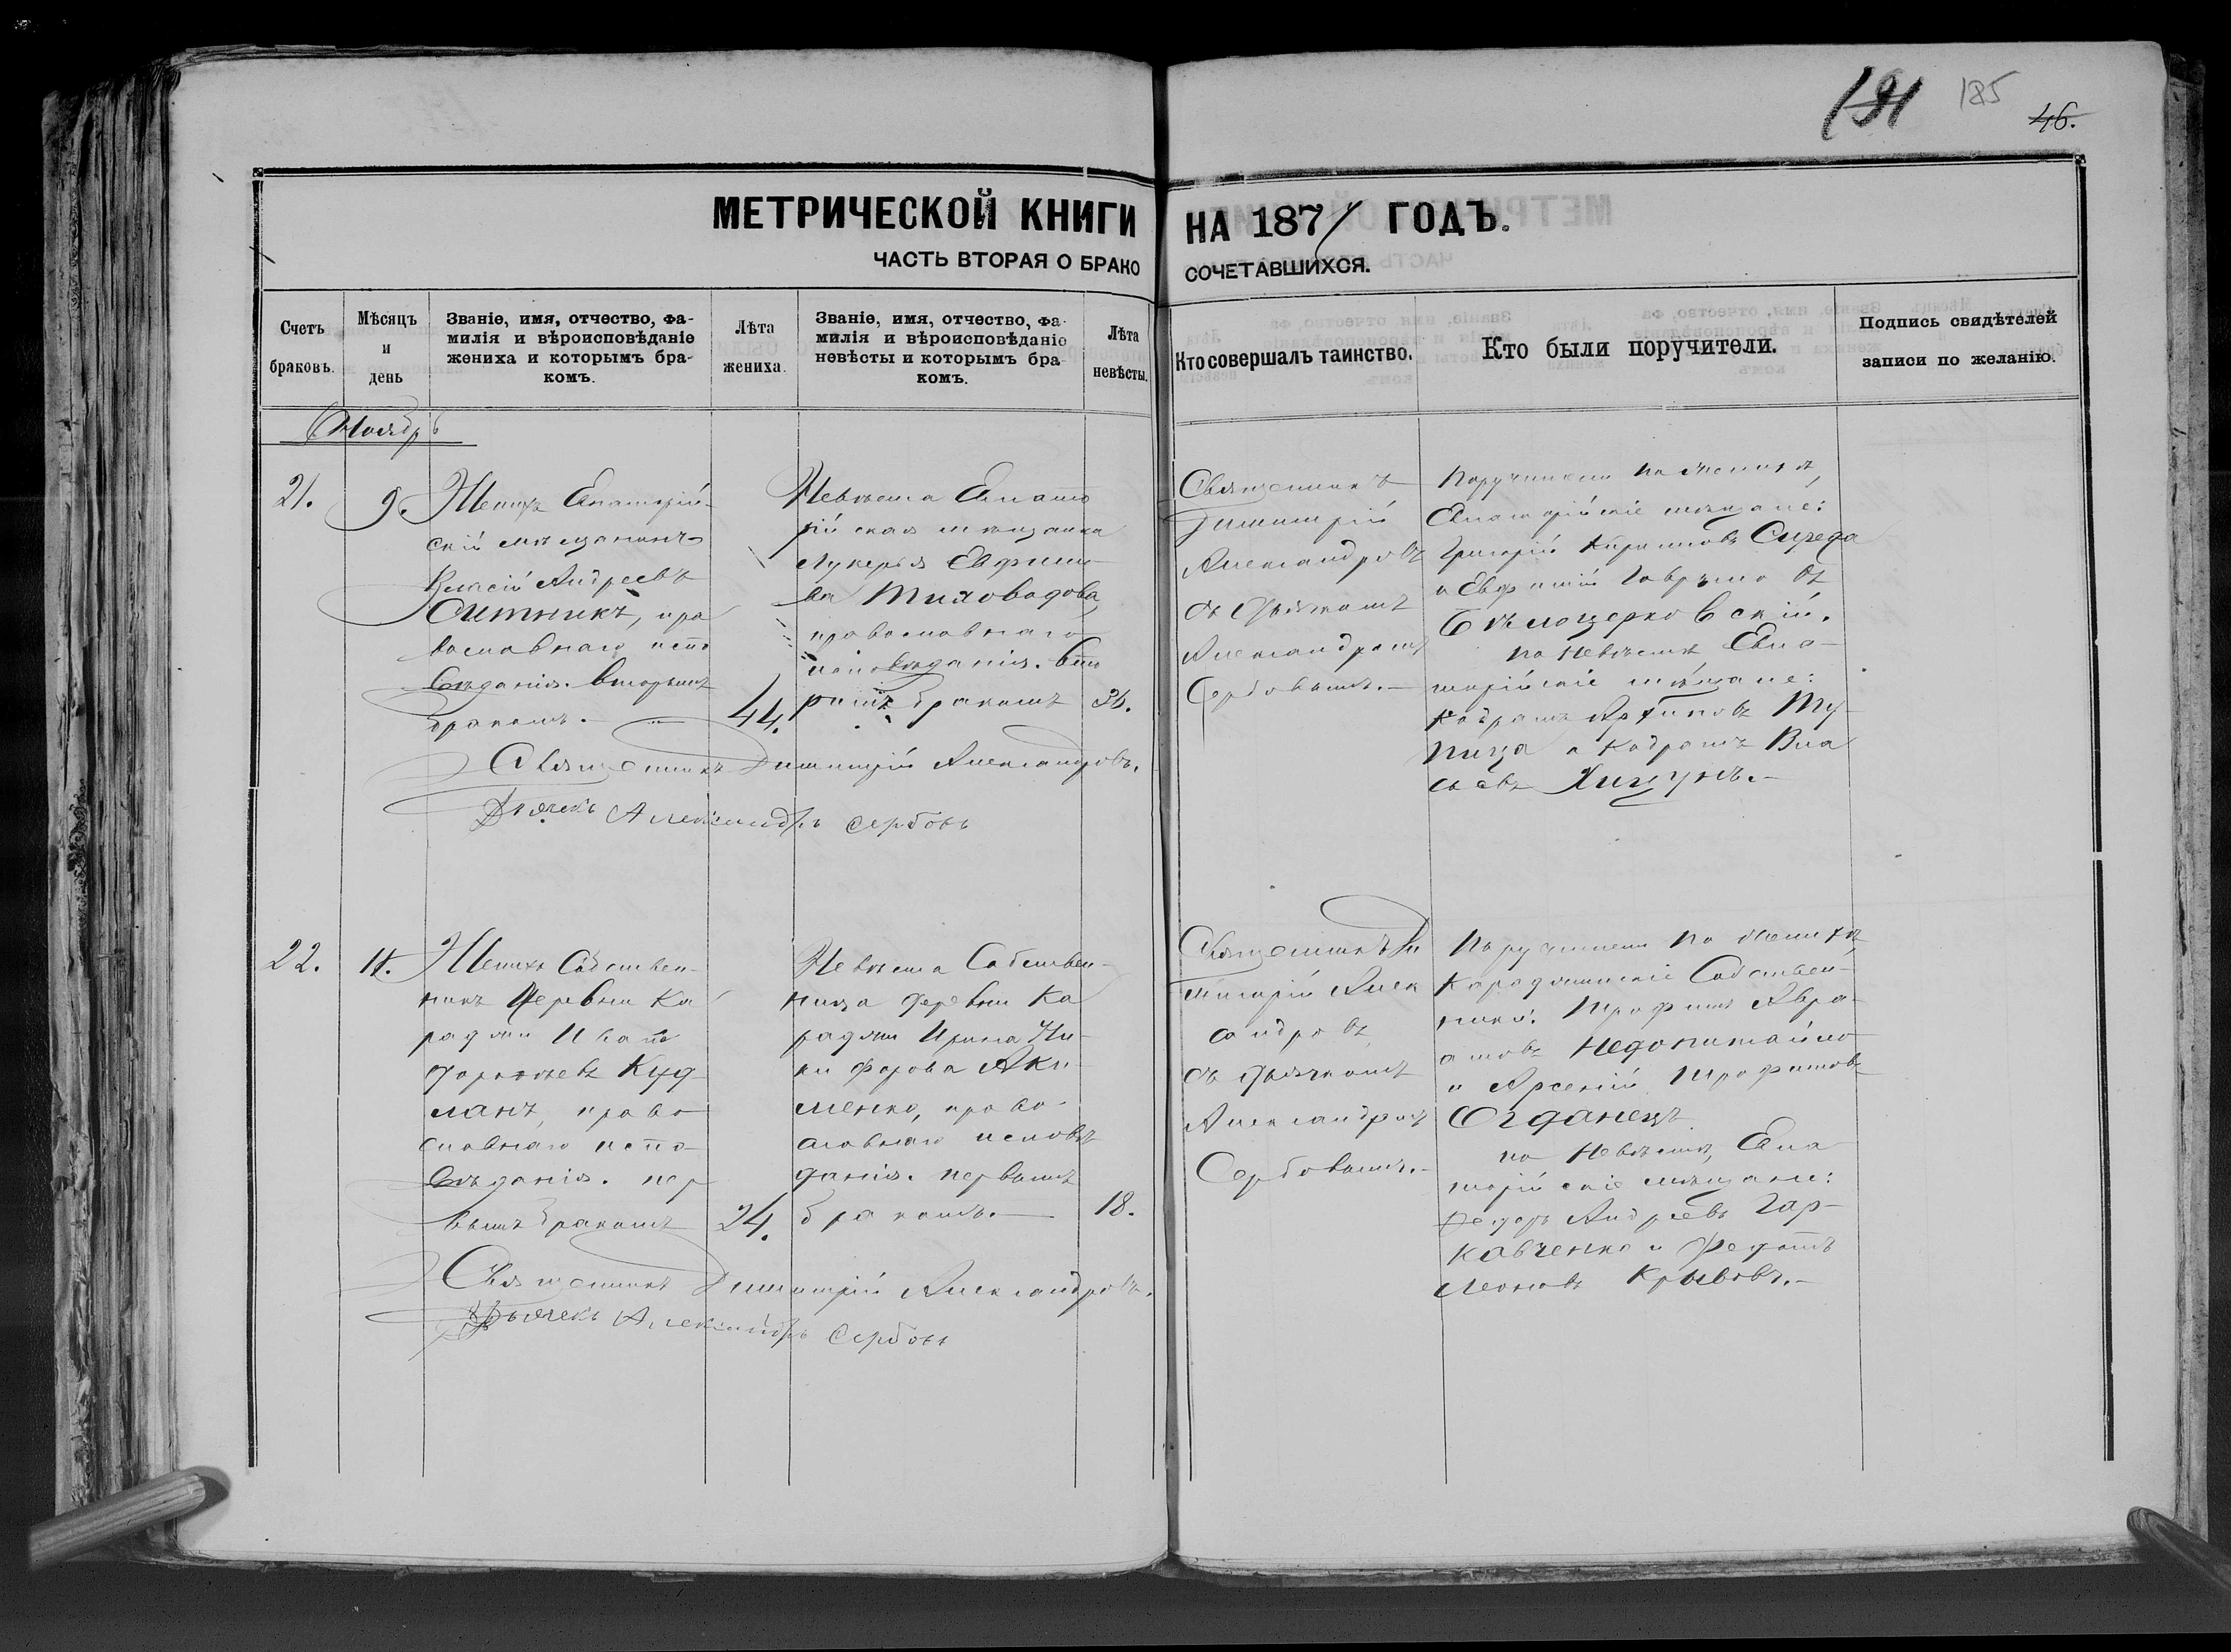 191 185 46.
МЕТРИЧЕСКОЙ КНИГИ НА 1871 ГОДЪ.
ЧАСТЬ ВТОРАЯ О БРАКОСОЧЕТАВШИХСЯ.
Счетъ браковъ.
Мѣсяцъ и день
Званіе, имя, отчество, фа-
милія и вѣроисповѣданіе
жениха и которымъ бра-
комъ.
Лѣта жениха.
Званіе, имя, отчество, фа-
милія и вѣроисповѣданіе
невѣсты и которымъ бра-
комъ.
Лѣта невѣсты.
Кто совершалъ таинство.
Кто были поручители.
Подпись свидѣтелей
записи по желанію.
Ноябрь
21.
9.
Женихъ Евпаторій-
скій мѣщанинъ
Андреевъ
Ситникъ, пра
вославнаго испо
вѣданія. вторымъ
бракомъ. —
44.
Невѣста Евпато
рійская мѣщанка
Лукерья Евфимо
ва Тиховодова,
православнаго
исповѣданія. вто
рымъ бракомъ
Священникъ
Димитрій
Александровъ
съ дьячкомъ
Александромъ
Сербовымъ. —
Поручители по женихѣ,
Евпаторійскіе мѣщане:
Григорій
и Гавриловъ
Бѣлоцерковскій.
по невѣстѣ Евпа-
торійскіе мѣщане:
Кодратъ Архиповъ Ту-
пица и Кодратъ Вла
совъ —
Священникъ Димитрій Александровъ.
Дьячекъ Александръ Сербовъ
22.
Женихъ Собствен-
никъ деревни Ка
раджи Игнатъ
Куд
ланъ, право
славнаго испо-
вѣданія. пер
вымъ бракомъ
24.
Невѣста Собствен-
ница деревни Ка
раджи Ирина Ни-
кифорова Аки
менко, право-
славнаго исповѣ
данія. первымъ
бракомъ. —
18.
Священникъ Ди
митрій Алек
сандровъ,
съ дьячкомъ
Александромъ
Сербовымъ. —
Поручители по женихѣ
Караджинскіе Собствен-
ники: Трофимъ Авра-
амовъ Недопитайло
и Арсеній Трофимовъ
Огданецъ
по невѣстѣ, Евпа
торійскіе мѣщане:
Федоръ Андреевъ Гар-
кавченко и Федотъ
Леоновъ Крывовъ. —
Священникъ Димитрій Александровъ.
Дьячекъ Александръ Сербовъ